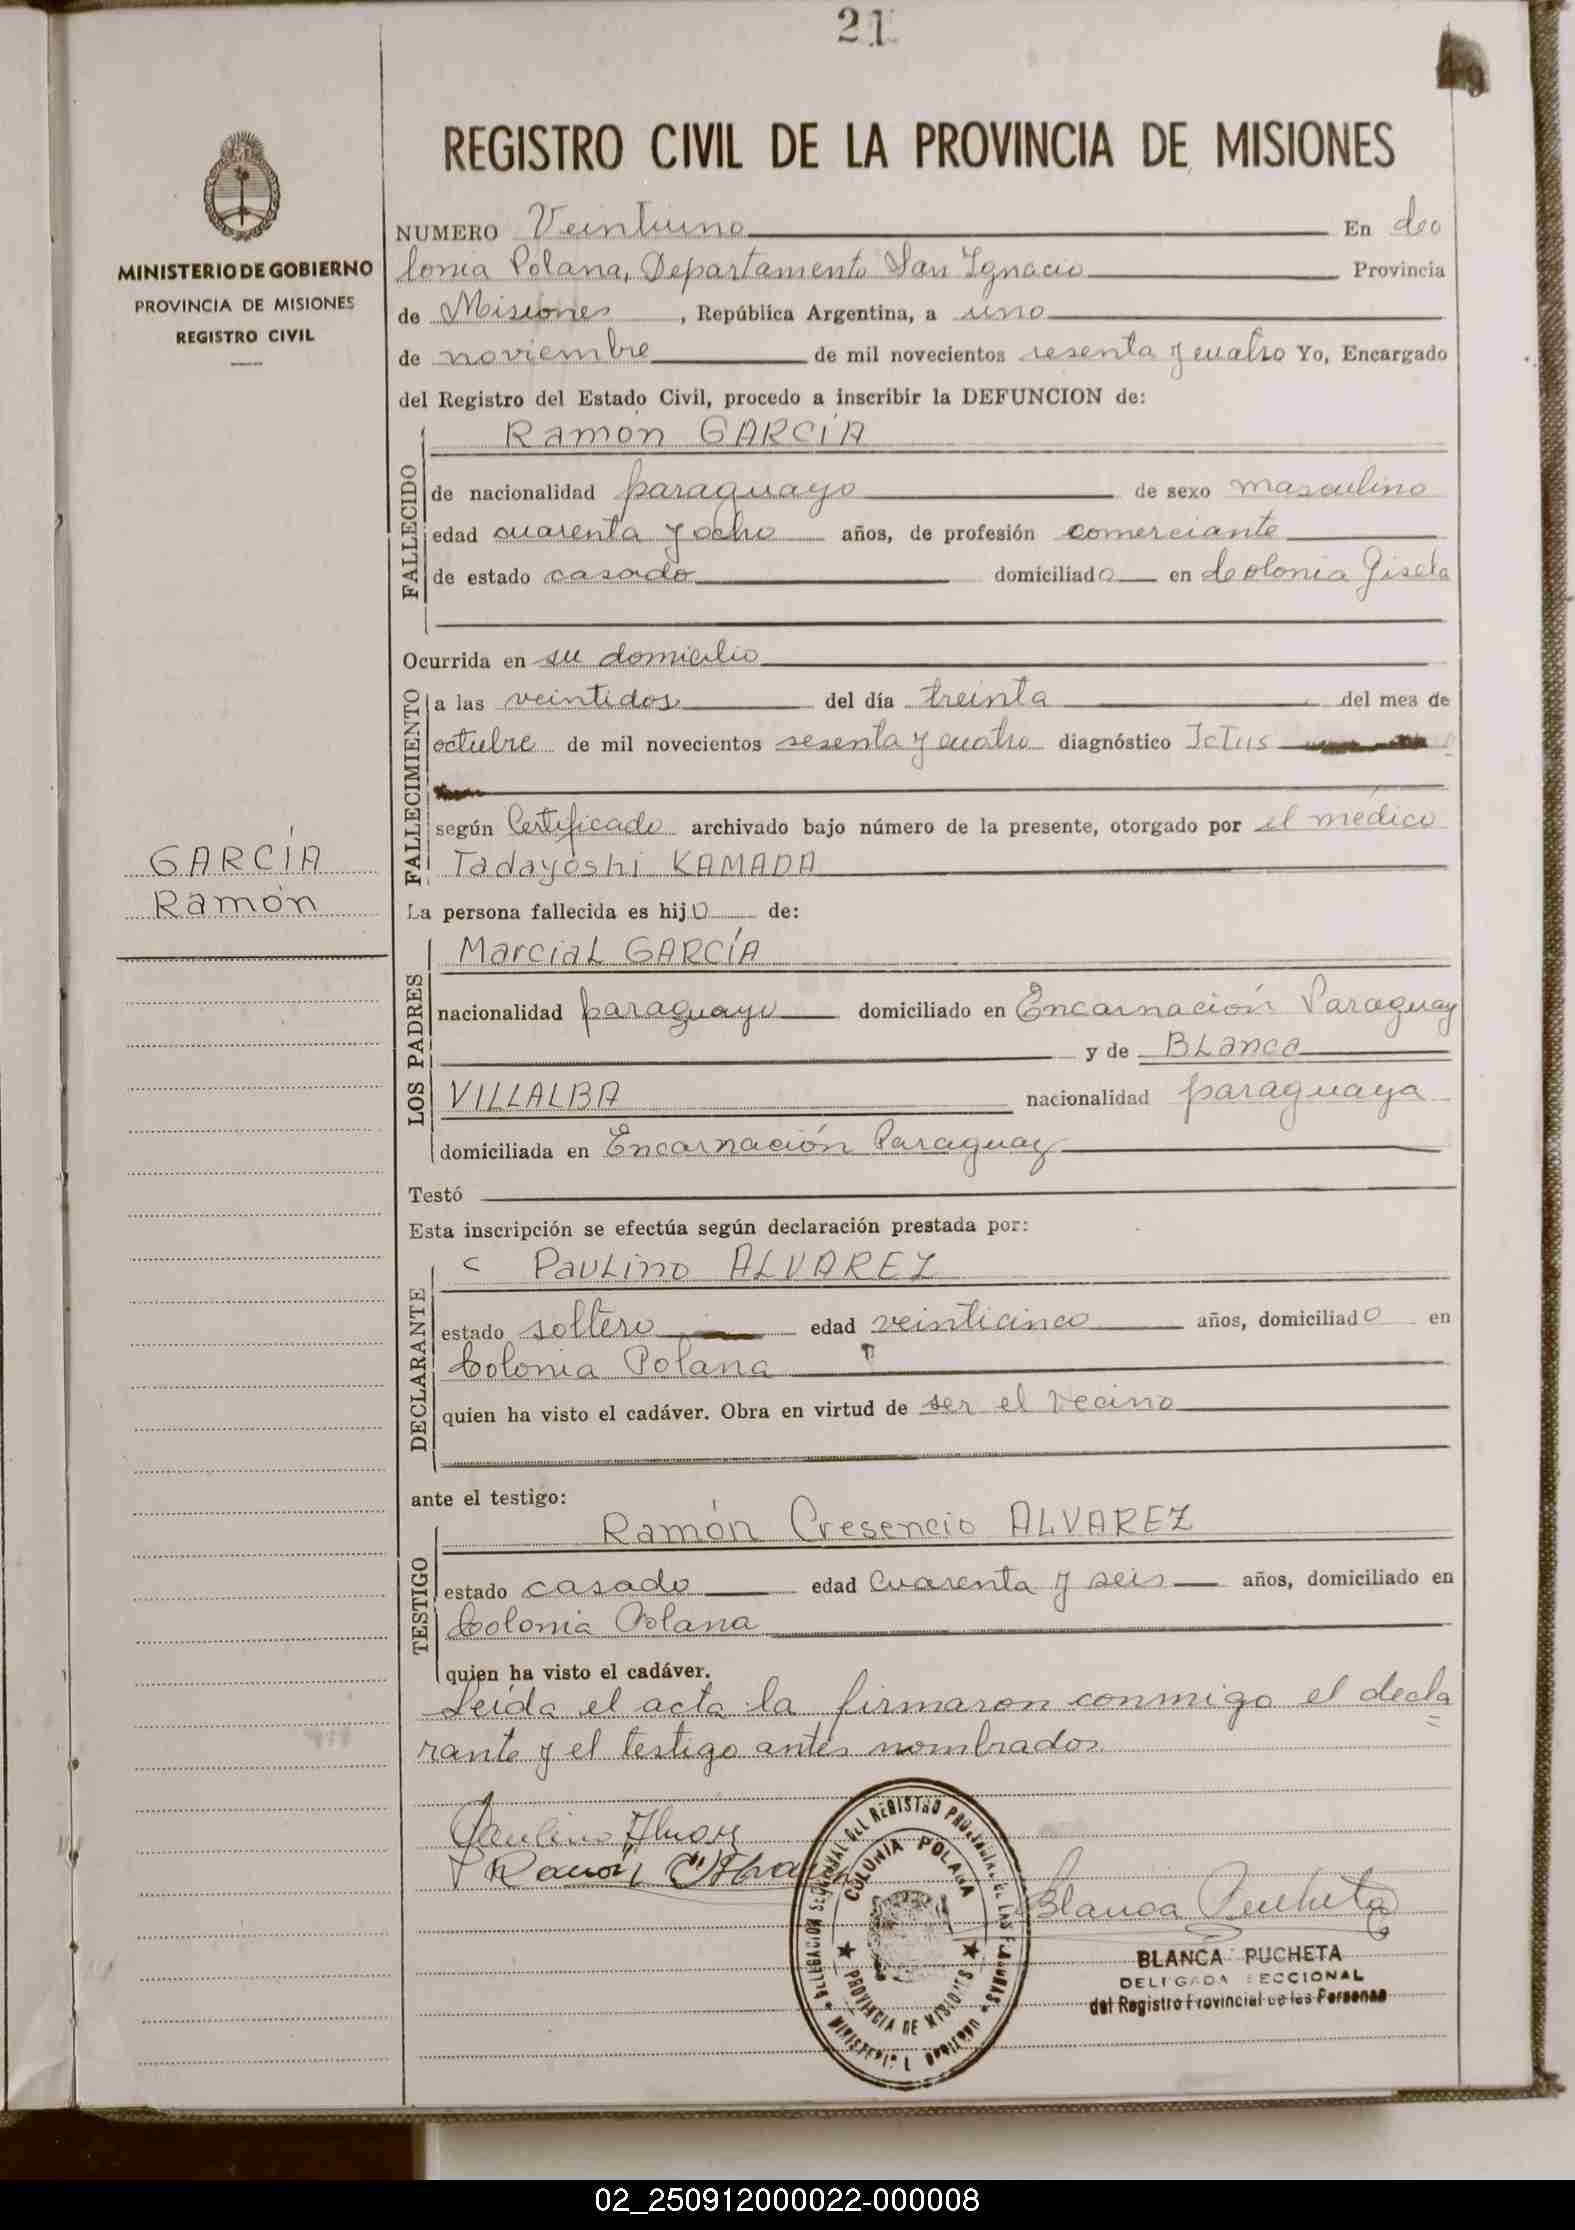 21
REGISTRO CIVIL DE LA PROVINCIA DE MISIONES
MINISTERIO DE GOBIERNO
PROVINCIA DE MISIONES
REGISTRO CIVIL
NUMERO Veintiuno En Co
lonia Polana, Departamento San Ignacio Provincia
de Misiones, República Argentina, a uno
de noviembre de mil novecientos sesenta y cuatro Yo, Encargado
del Registro del Estado Civil, procedo a inscribir la DEFUNCION de:
FALLECIDO
Ramón GARCÍA
de nacionalidad paraguayo de sexo masculino
edad cuarenta y ocho años, de profesión comerciante
de estado casado domiciliado en Colonia Gisela
Ocurrida en su domicilio
FALLECIMIENTO
a las veintidos del día treinta del mes de
octubre de mil novecientos sesenta y cuatro diagnóstico Ictus
según Certificado archivado bajo número de la presente, otorgado por el médico
Tadayoshi KAMADA
GARCÍA
Ramón
La persona fallecida es hijo de:
LOS PADRES
Marcial GARCÍA
nacionalidad paraguayo domiciliado en Encarnación Paraguay
y de Blanca
VILLALBA nacionalidad paraguaya
domiciliada en Encarnación Paraguay
Testó
Esta inscripción se efectúa según declaración prestada por:
DECLARANTE
Paulino ALVAREZ
estado soltero edad veinticinco años, domiciliado en
Colonia Polana
quien ha visto el cadáver. Obra en virtud de ser el vecino
ante el testigo:
TESTIGO
Ramón Cresencio ALVAREZ
estado casado edad cuarenta y seis años, domiciliado en
Colonia Polana
quien ha visto el cadáver.
Leída el acta la firmaron conmigo el decla
rante y el testigo antes nombrados
Paulino Alvarez
Ramón C Alvarez
COLONIA POLANA
PROVINCIA DE MISIONES
Blanca Pucheta
BLANCA PUCHETA
DELEGADA SECCIONAL
del Registro Provincial de las Personas
02_250912000022-000008